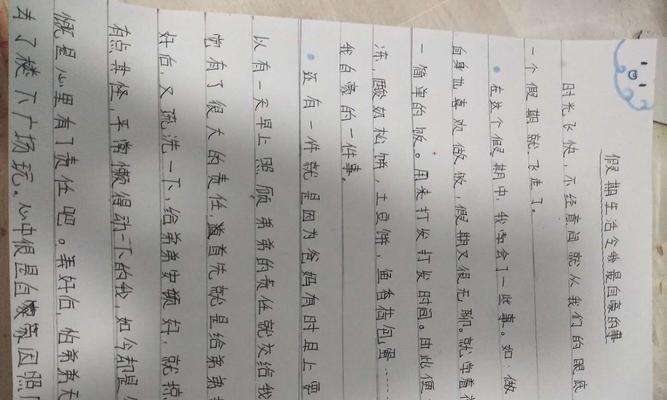 假期生活令我最自豪的事
时光飞快,不经意间就从我们的眼底
一个假期就飞走了。
在这个假期中,我学会了一些事。如:做
自身也喜欢做饭,假期又很无聊。就学着
一简单的饭。用来打发打发时间。由此便
冻,酸奶松饼,土豆饼,鱼香荷包蛋……
我自豪的一件事。
还有一件就是因为爸妈有时早上要
以有一天早上照顾弟弟的责任就交给我
也有了很大的责任,首先就是给弟弟
好后,又碗洗一下,给弟弟安顿好,就
有点奇怪,平常懒得动一下的我,如今却是
概是心里有了责任吧。弄好后,怕弟弟无
去了楼下广场玩。心中很是自豪因照